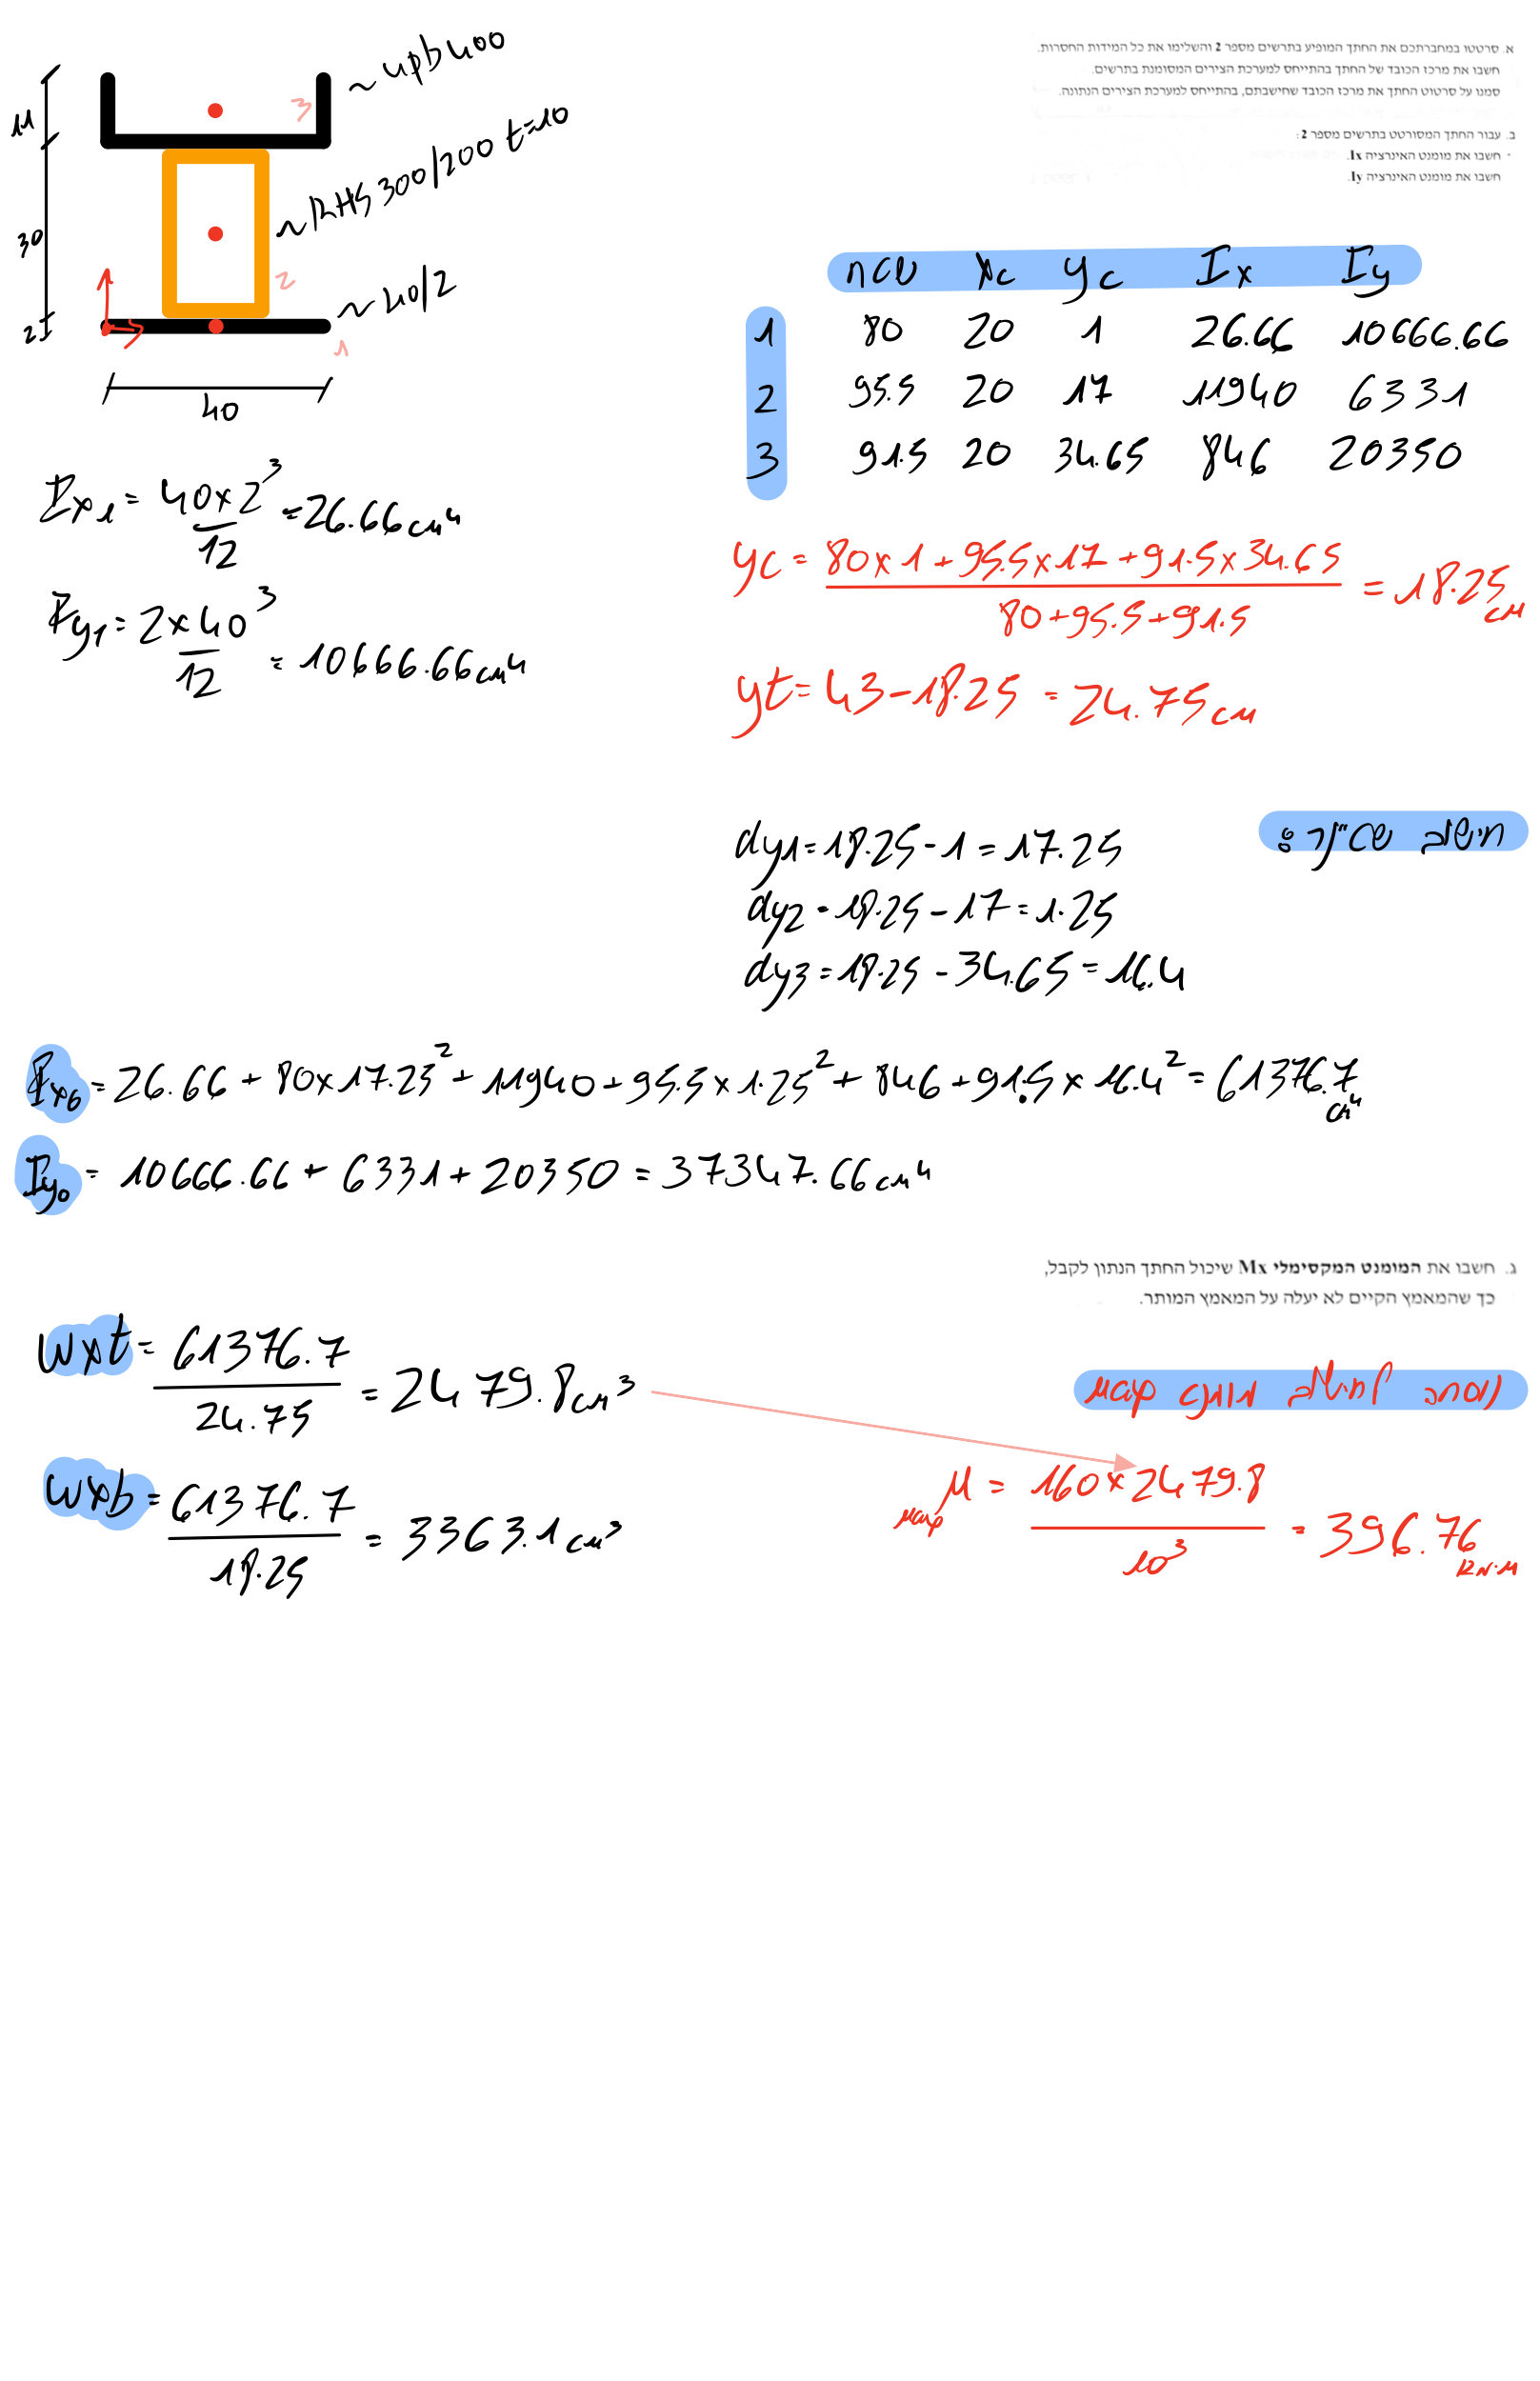 א. סרטטו במחברתכם את החתך המופיע בתרשים מספר 2 והשלימו את כל המידות החסרות.
חשבו את מרכז הכובד של החתך בהתייחס למערכת הצירים המסומנת בתרשים.
סמנו על סרטוט החתך את מרכז הכובד שחישבתם, בהתייחס למערכת הצירים הנתונה.
ב. עבור החתך המסורטט בתרשים מספר 2:
חשבו את מומנט האינרציה Ix.
חשבו את מומנט האינרציה Iy.
~ upb 400
~ RHS 300/200 t=10
~ 40/2
11
30
2
40
3
2
1
שטח Xc yc Ix Iy
1 80 20 1 26.66 10666.66
2 95.5 20 17 11940 6331
3 91.5 20 34.65 846 20350
Ix1 = 40x2³/12 = 26.66cm⁴
Iy1 = 2x40³/12 = 10666.66cm⁴
yc = 80x1 + 95.5x17 + 91.5x34.65 / 80+95.5+91.5 = 18.25cm
yt = 43-18.25 = 24.75cm
חישוב שטיינר:
dy1 = 18.25-1 = 17.25
dy2 = 18.25-17 = 1.25
dy3 = 18.25-34.65 = 16.4
Ix0 = 26.66 + 80x17.25² + 11940 + 95.5x1.25² + 846 + 91.5x16.4² = 61376.7cm⁴
Iy0 = 10666.66 + 6331 + 20350 = 37347.66cm⁴
ג. חשבו את המומנט המקסימלי Mx שיכול החתך הנתון לקבל,
כך שהמאמץ הקיים לא יעלה על המאמץ המותר.
wxt = 61376.7/24.75 = 2479.8cm³
wxb = 61376.7/18.25 = 3363.1cm³
נוסחה לחישוב מומנט max
M max = 160x2479.8/10³ = 396.76 kN·M